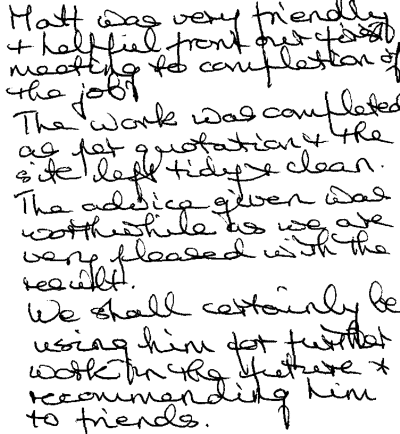 Matt was very friendly
+ helpful from our first
meeting to completion of
the job.
The work was completed
as per quotation & the
site left tidy & clean.
The advice given was
worthwhile as we are
very pleased with the
result.
We shall certainly be
using him for further
work in the future +
recommending him
to friends.